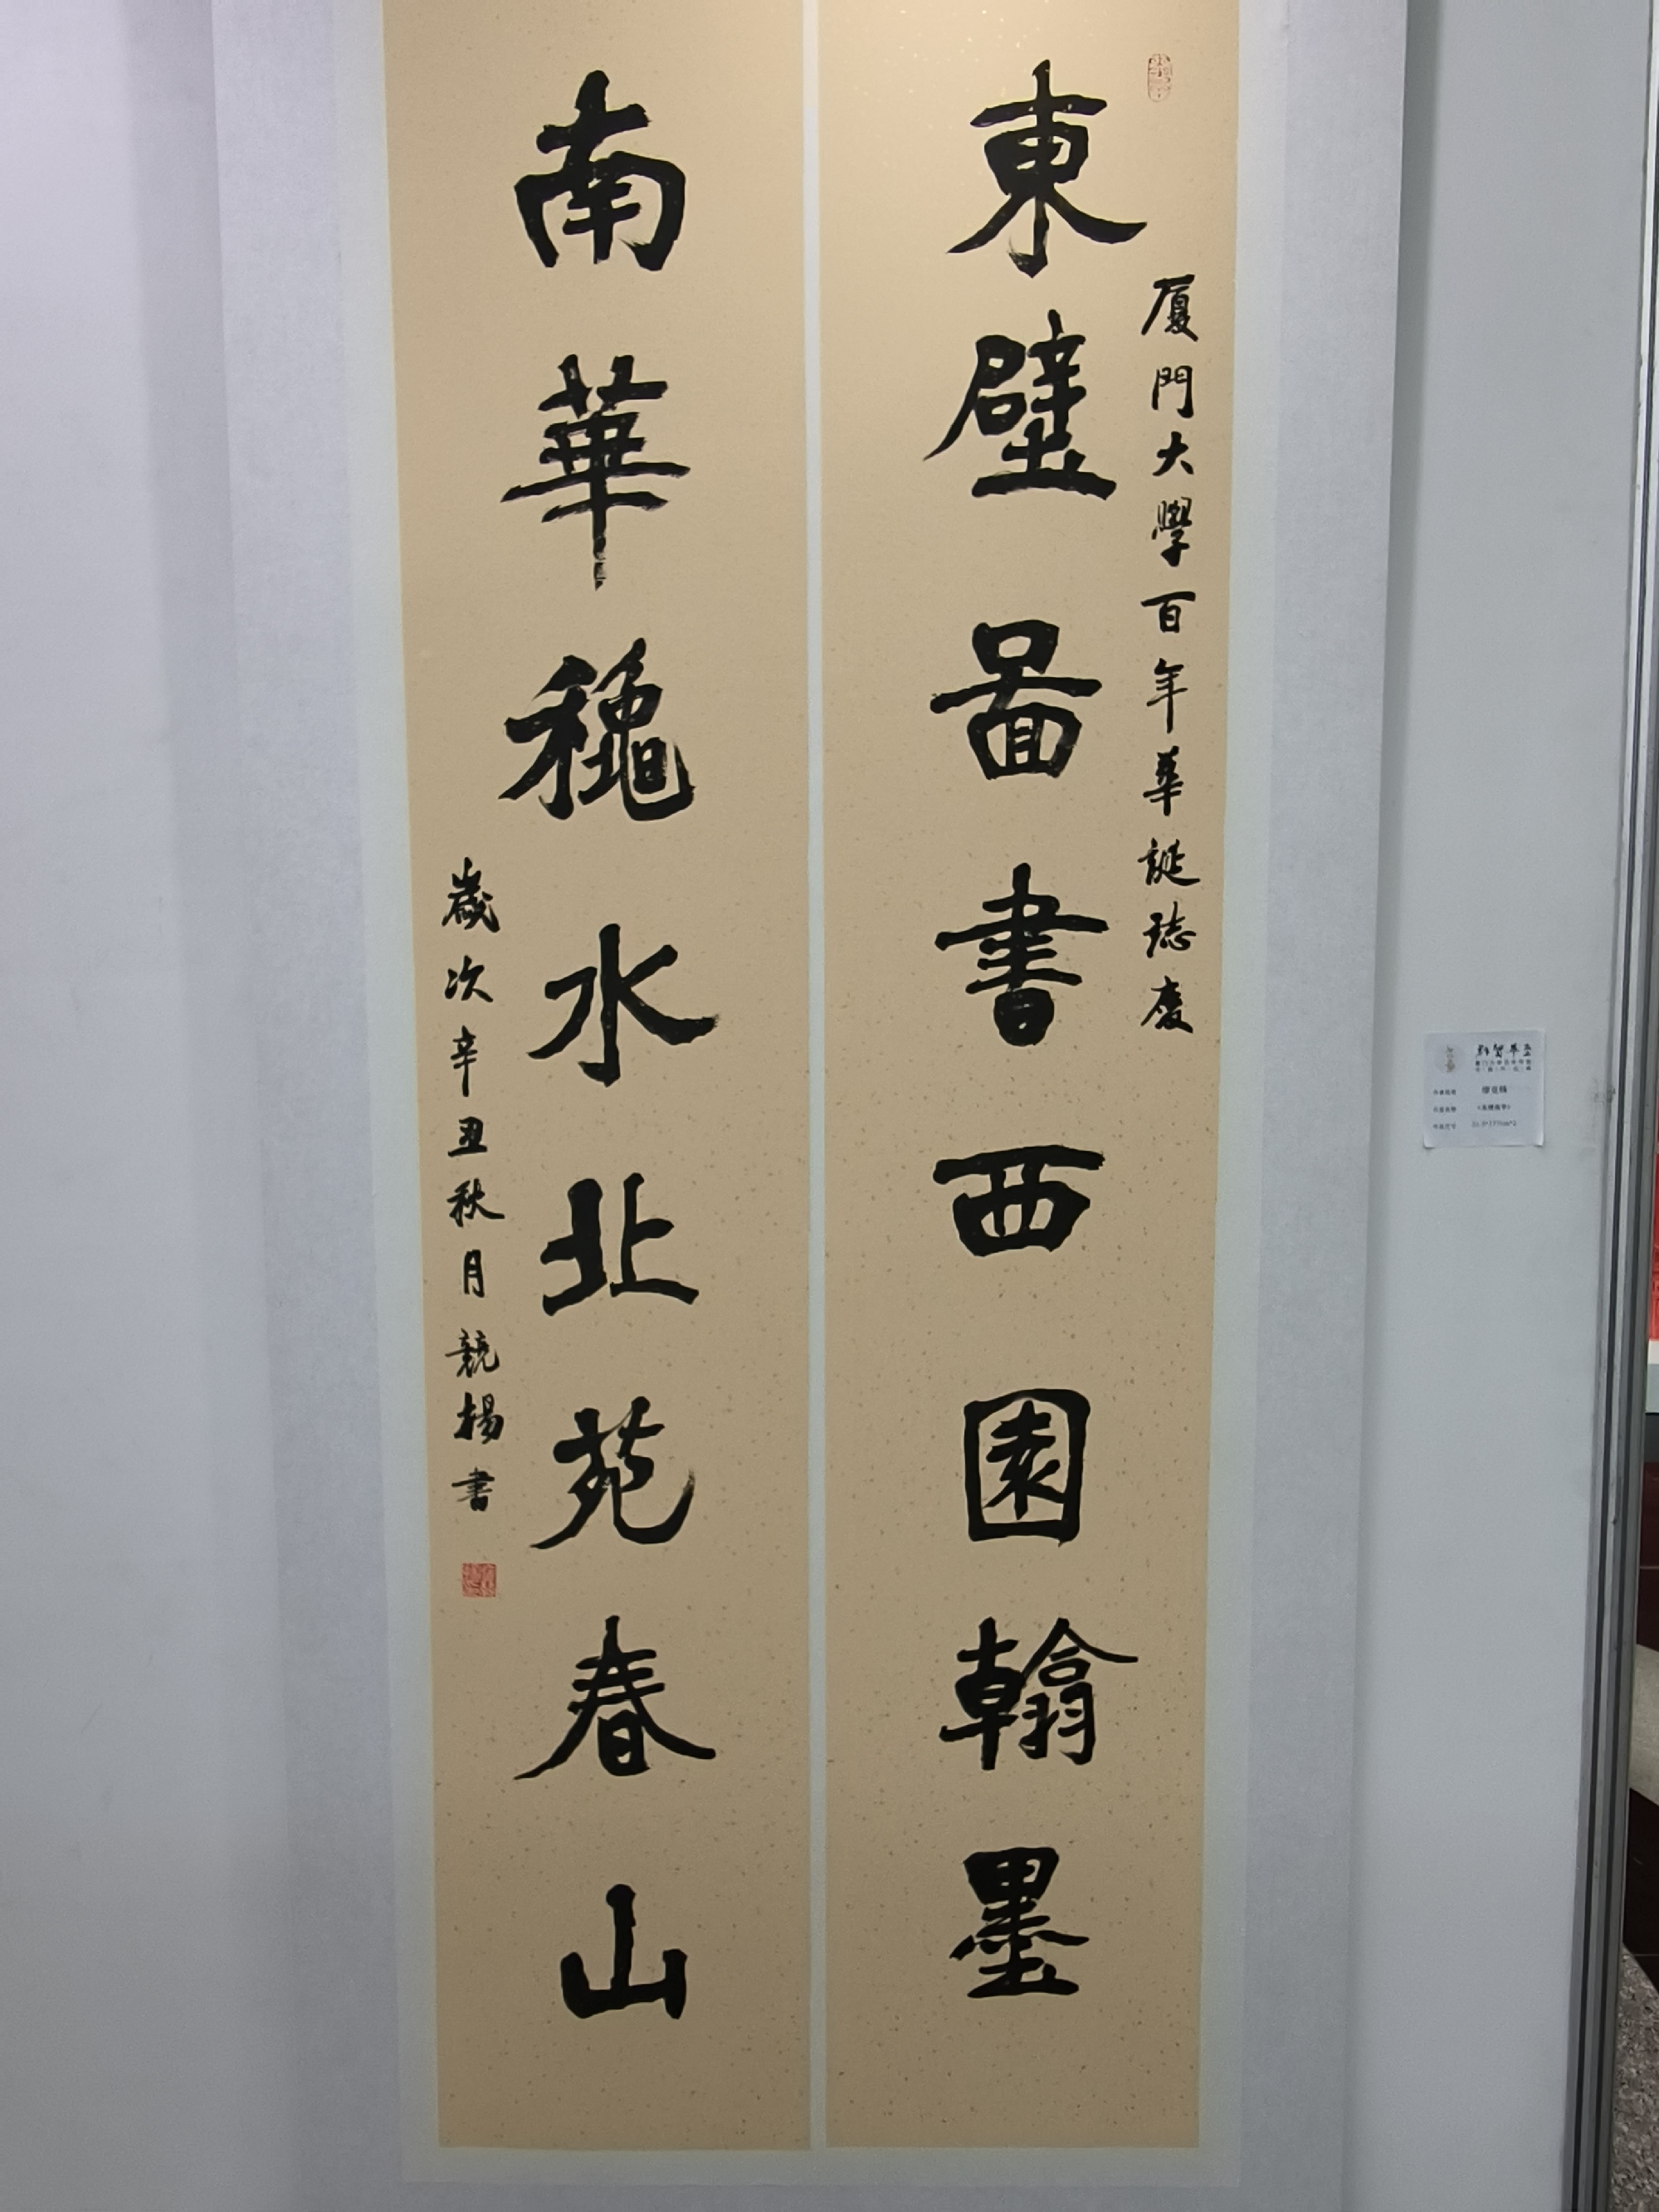 厦門大學百年華誕誌慶
東壁啚書西園翰墨
南華穐水北苑春山
歲次辛丑秋月競楊書